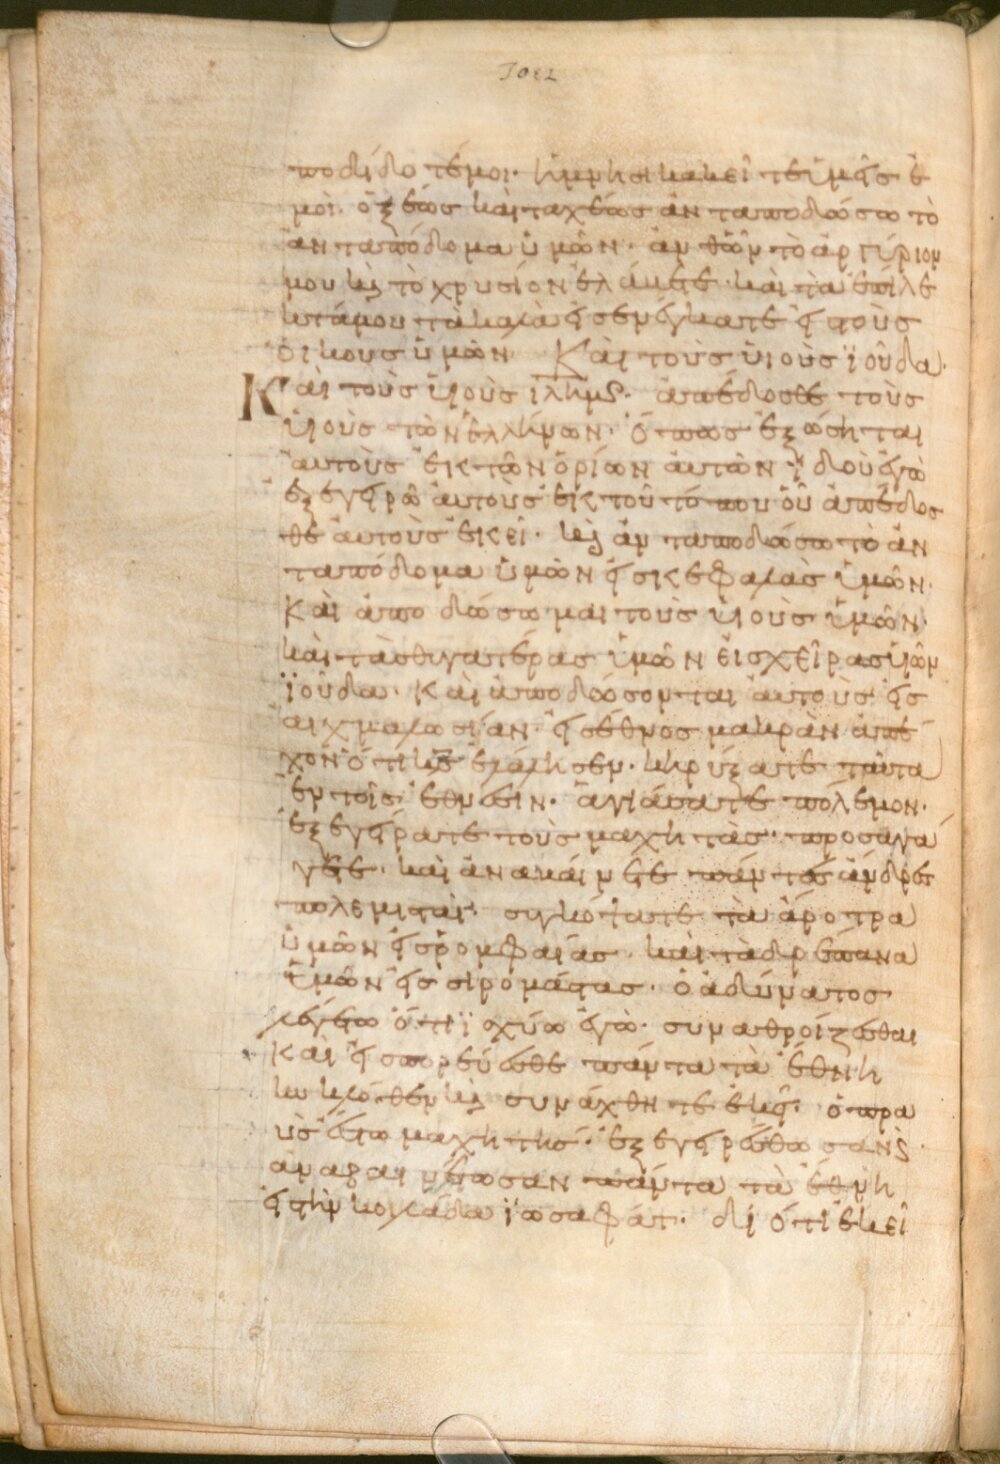 JOEL
ποδίδοτέ μοι· ἢ μνησικακεῖτε ὑμεῖς ἐ
μοί· ὀξέως καὶ ταχέως ἀνταποδώσω τὸ
ἀνταπόδομα ὑμῶν· ἀνθῶν τὸ ἀργύριον
μου κ(αὶ) τὸ χρυσίον ἐλάβετε· καὶ τὰ ἐπίλε
κτά μου τὰ καλὰ εἰσενέγκατε εἰς τοὺς
οἴκους ὑμῶν Καὶ τοὺς υἱοὺς ϊούδα·
Καὶ τοὺς υἱοὺς ιλημς· ἀπέδοσθε τοὺς
υἱοὺς τῶν ἑλλήνων· ὅπως ἐξώσηται
αὐτοὺς ἐκ τῶν ὁρίων αὐτῶν· ϊδοὺ ἐγὼ
ἐξεγερῶ αὐτοὺς ἐκ τοῦ τόπου οὗ ἀπέδοσ
θε αὐτοὺς ἐκεῖ· κ(αὶ) ἀνταποδώσω τὸ ἀν
ταπόδομα ὑμῶν εἰς κεφαλὰς ὑμῶν·
Καὶ ἀποδώσωμαι τοὺς υἱοὺς ὑμῶν·
καὶ τὰς θυγατέρας ὑμῶν εἰς χεῖρας υἱῶν
ϊούδα· Καὶ ἀποδώσονται αὐτοὺς εἰς
αἰχμαλωσίαν· εἰς ἔθνος μακρὰν ἀπέ
χον ὅτι κς ἐλάλησεν· κηρύξατε ταῦτα
ἐν τοῖς ἔθνεσιν· ἁγιάσατε πόλεμον·
ἐξεγείρατε τοὺς μαχητάς· προσαγά
γετε· καὶ ἀναβαίνετε πάντες ἄνδρες
πολεμισταί· συγκόψατε τὰ ἄροτρα
ὑμῶν εἰς ρομφαίας· καὶ τὰ δρέπανα
ὑμῶν εἰς σιρομάστας· ὁ ἀδύνατος
λεγέτω ὅτι ϊσχύω ἐγώ· συναθροίζεσθαι
καὶ εἰσπορεύεσθε πάντα τὰ ἔθνη
κυκλόθεν κ(αὶ) συνάχθητε ἐκεῖ· ὁ πρα
ὺς ἔστω μαχητής· ἐξεγερέσθωσαν κ(αὶ)
ἀναβαινέτωσαν πάντα τὰ ἔθνη
εἰς τὴν κοιλάδα ϊωσαφάτ· διότι ἐκεῖ